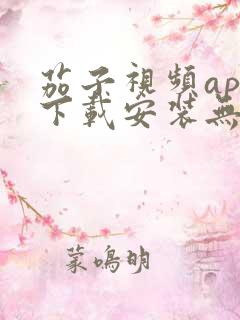 茄子視頻ap
下載安裝無
蒙鳴明